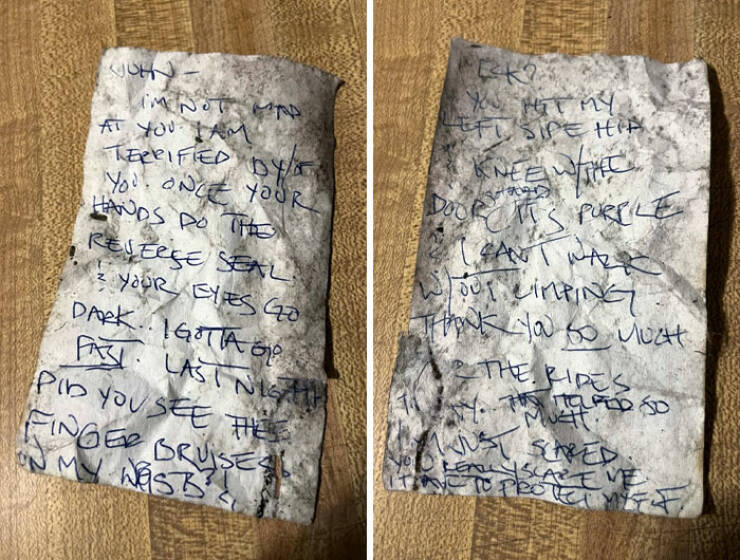 JOHN -
I'M NOT MAD
AT YOU. I AM
TERRIFIED BY/OF
YOU. ONCE YOUR
HANDS DO THE
REVERSE SEAL
& YOUR EYES GO
DARK.. I GOTTA GO
FAST. LAST NIGHT
DID YOU SEE THE
FINGER BRUISES
ON MY
YOU HIT MY
LEFT SIDE HIP
KNEE W/THE
DOOR IT'S PURPLE
& I CAN'T WALK
W/OUT LIMPING
THANK YOU SO MUCH
& THE RIDES
HELPED SO
MUCH.
I'M JUST SCARED.
YOU REALLY SCARE ME.
I HAVE TO PROTECT MYSELF.